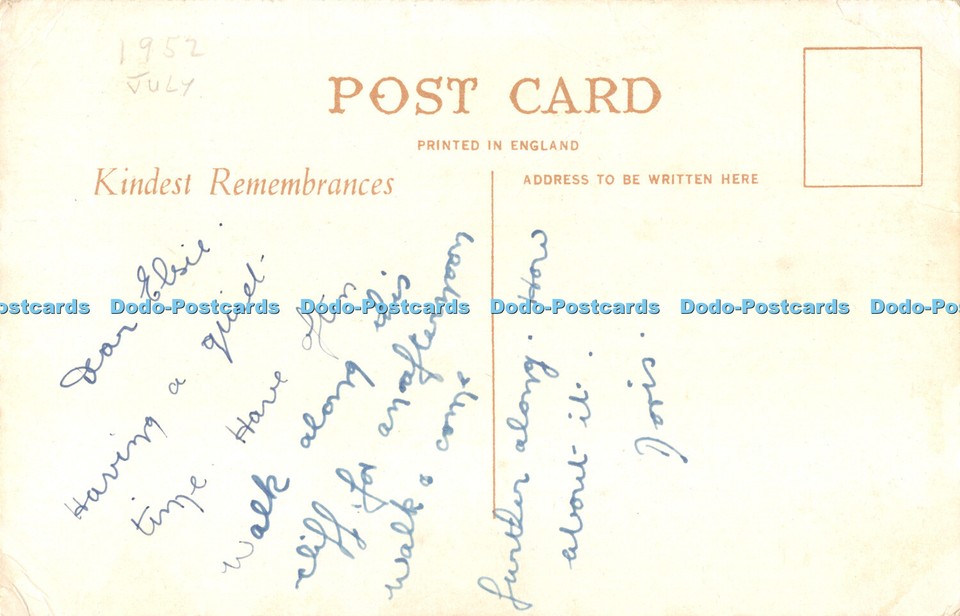 1952
JULY
POST CARD
PRINTED IN ENGLAND
Kindest Remembrances
ADDRESS TO BE WRITTEN HERE
Dear Elsie.
Having a quiet
time. Have often
walk along this
cliff for an afternoon
walk & come
further along. How
about it.
Doris.
ostcards Dodo-Postcards Dodo-Postcards Dodo-Postcards Dodo-Postcards Dodo-Po